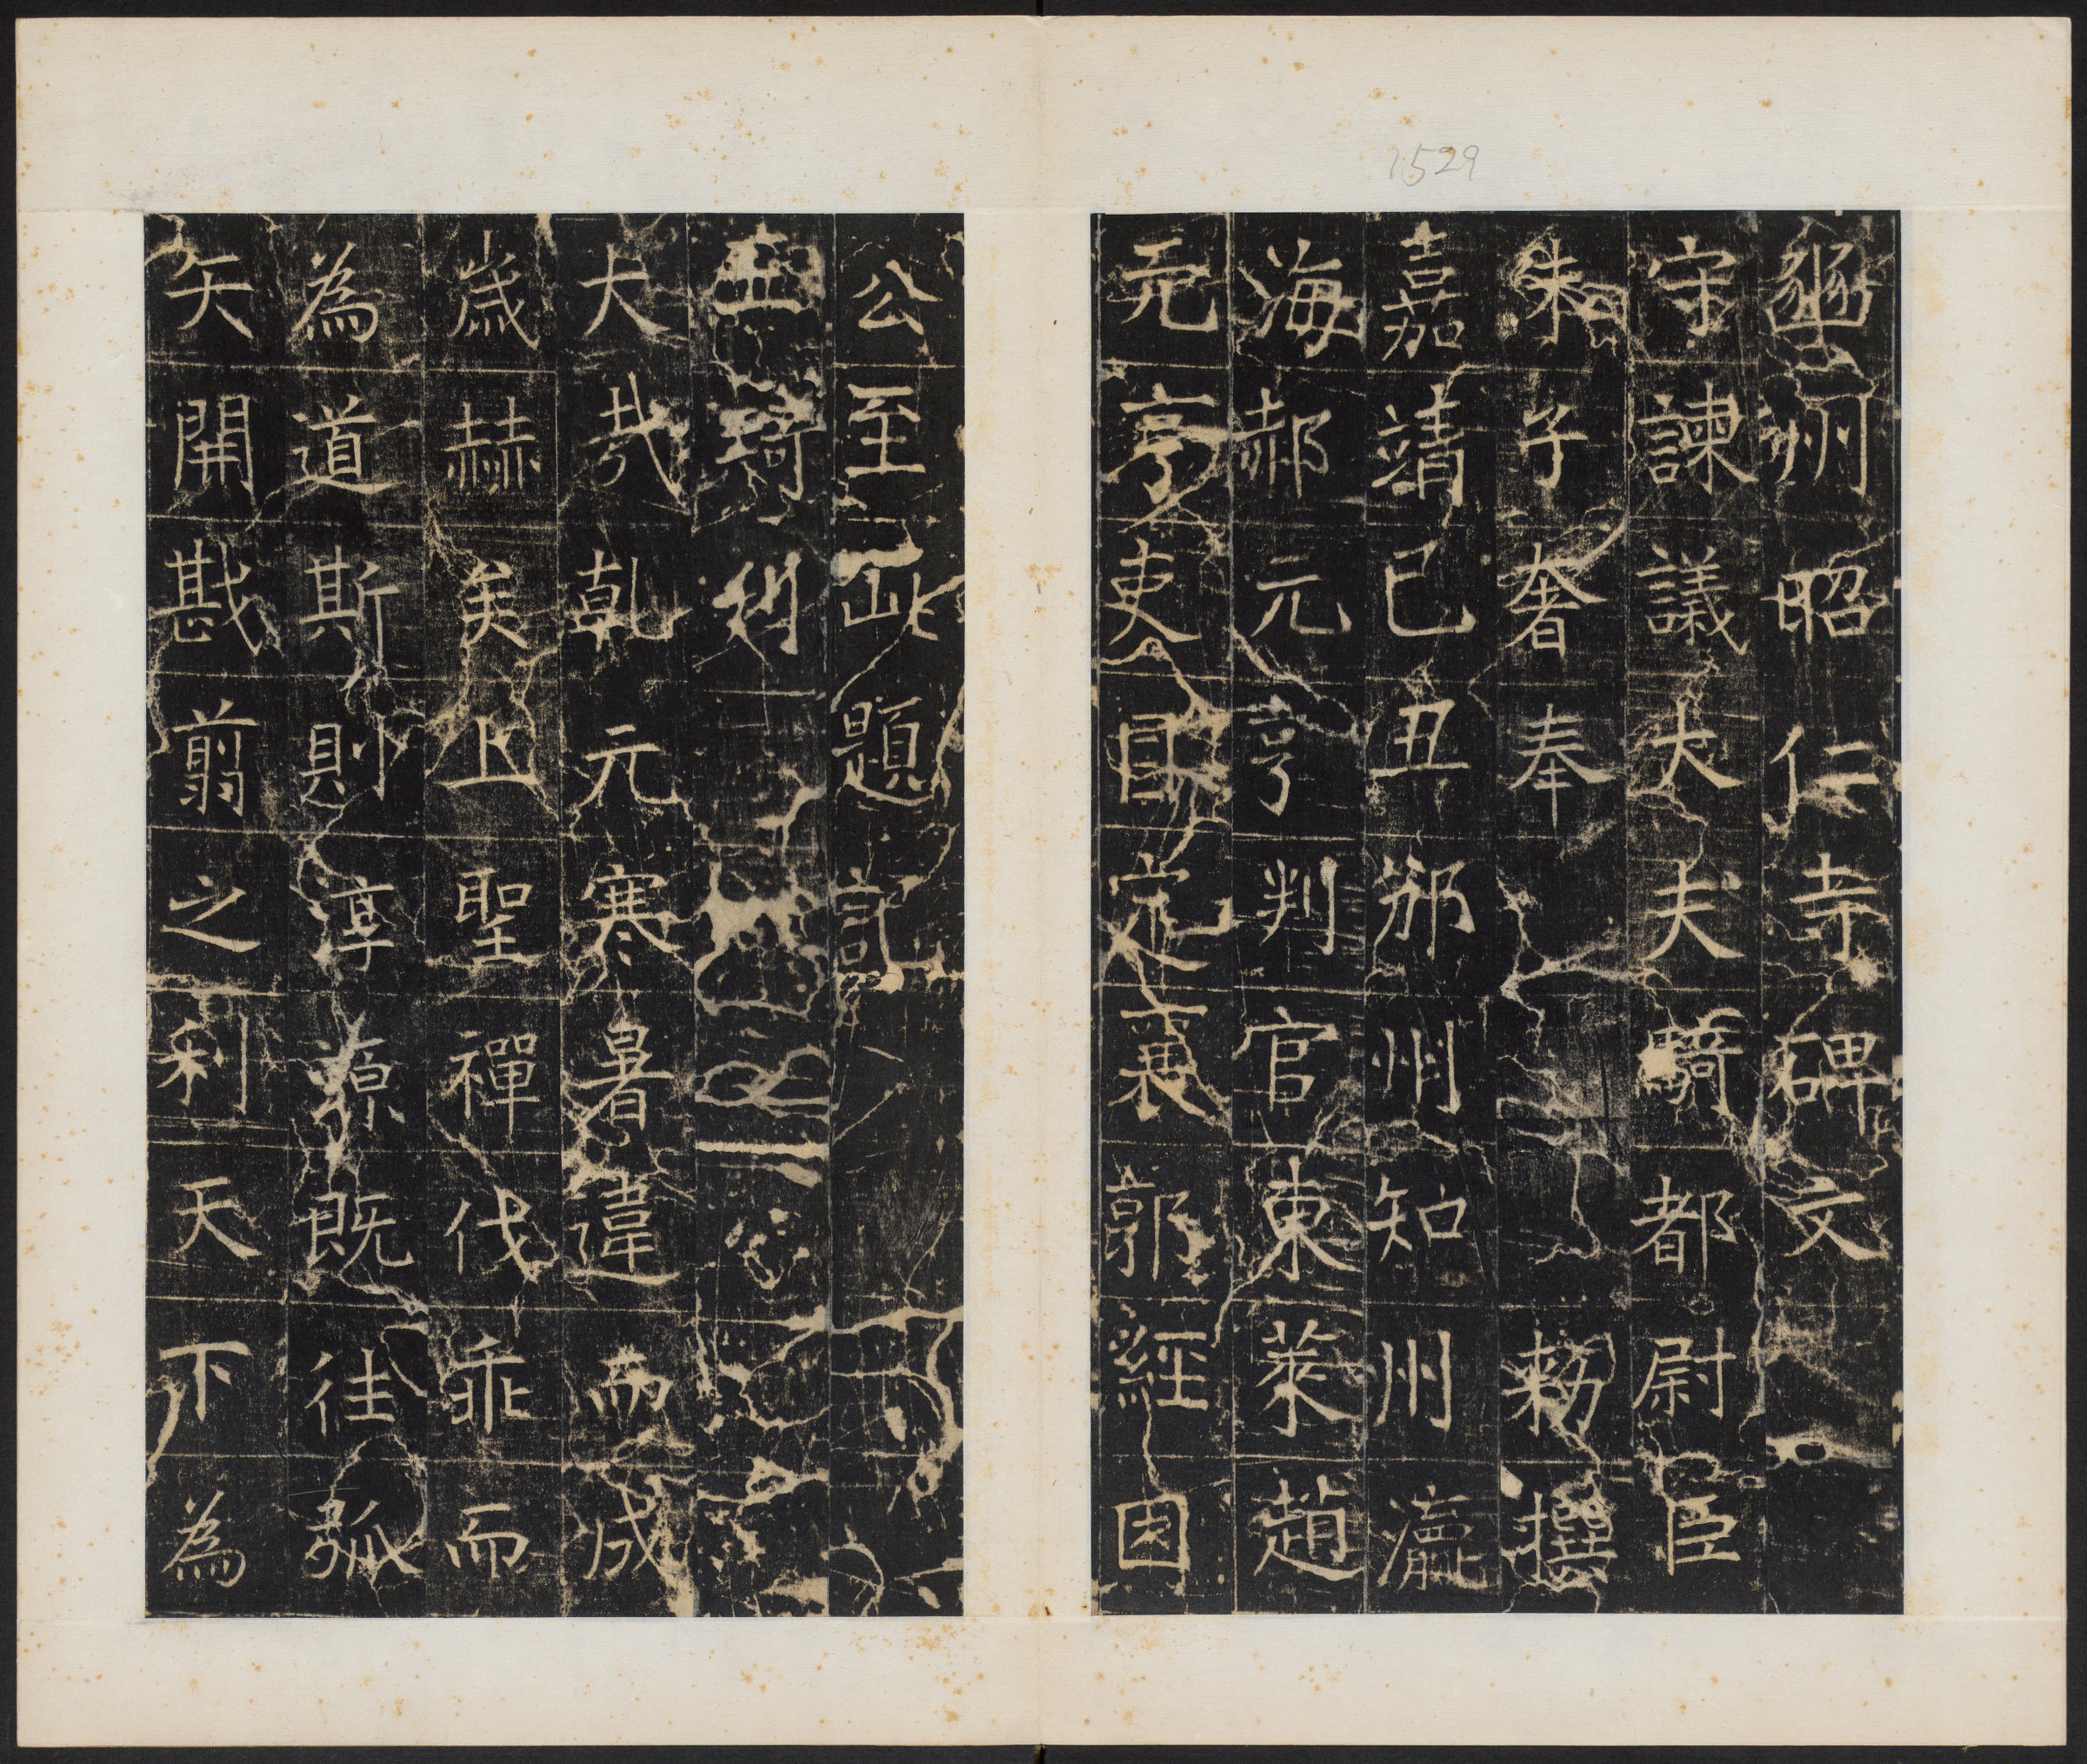 1529
豳州昭仁寺碑文
守諫議大夫騎都尉臣
朱子奢奉 敕撰
嘉靖己丑邠州知州瀛
海郝元亨判官東萊趙
元亨吏目定襄郭經因
公至此題記
大哉乾元寒暑違而成
歲赫矣上聖禪伐乖而
為道斯則淳源既往弧
矢開戡翦之利天下為